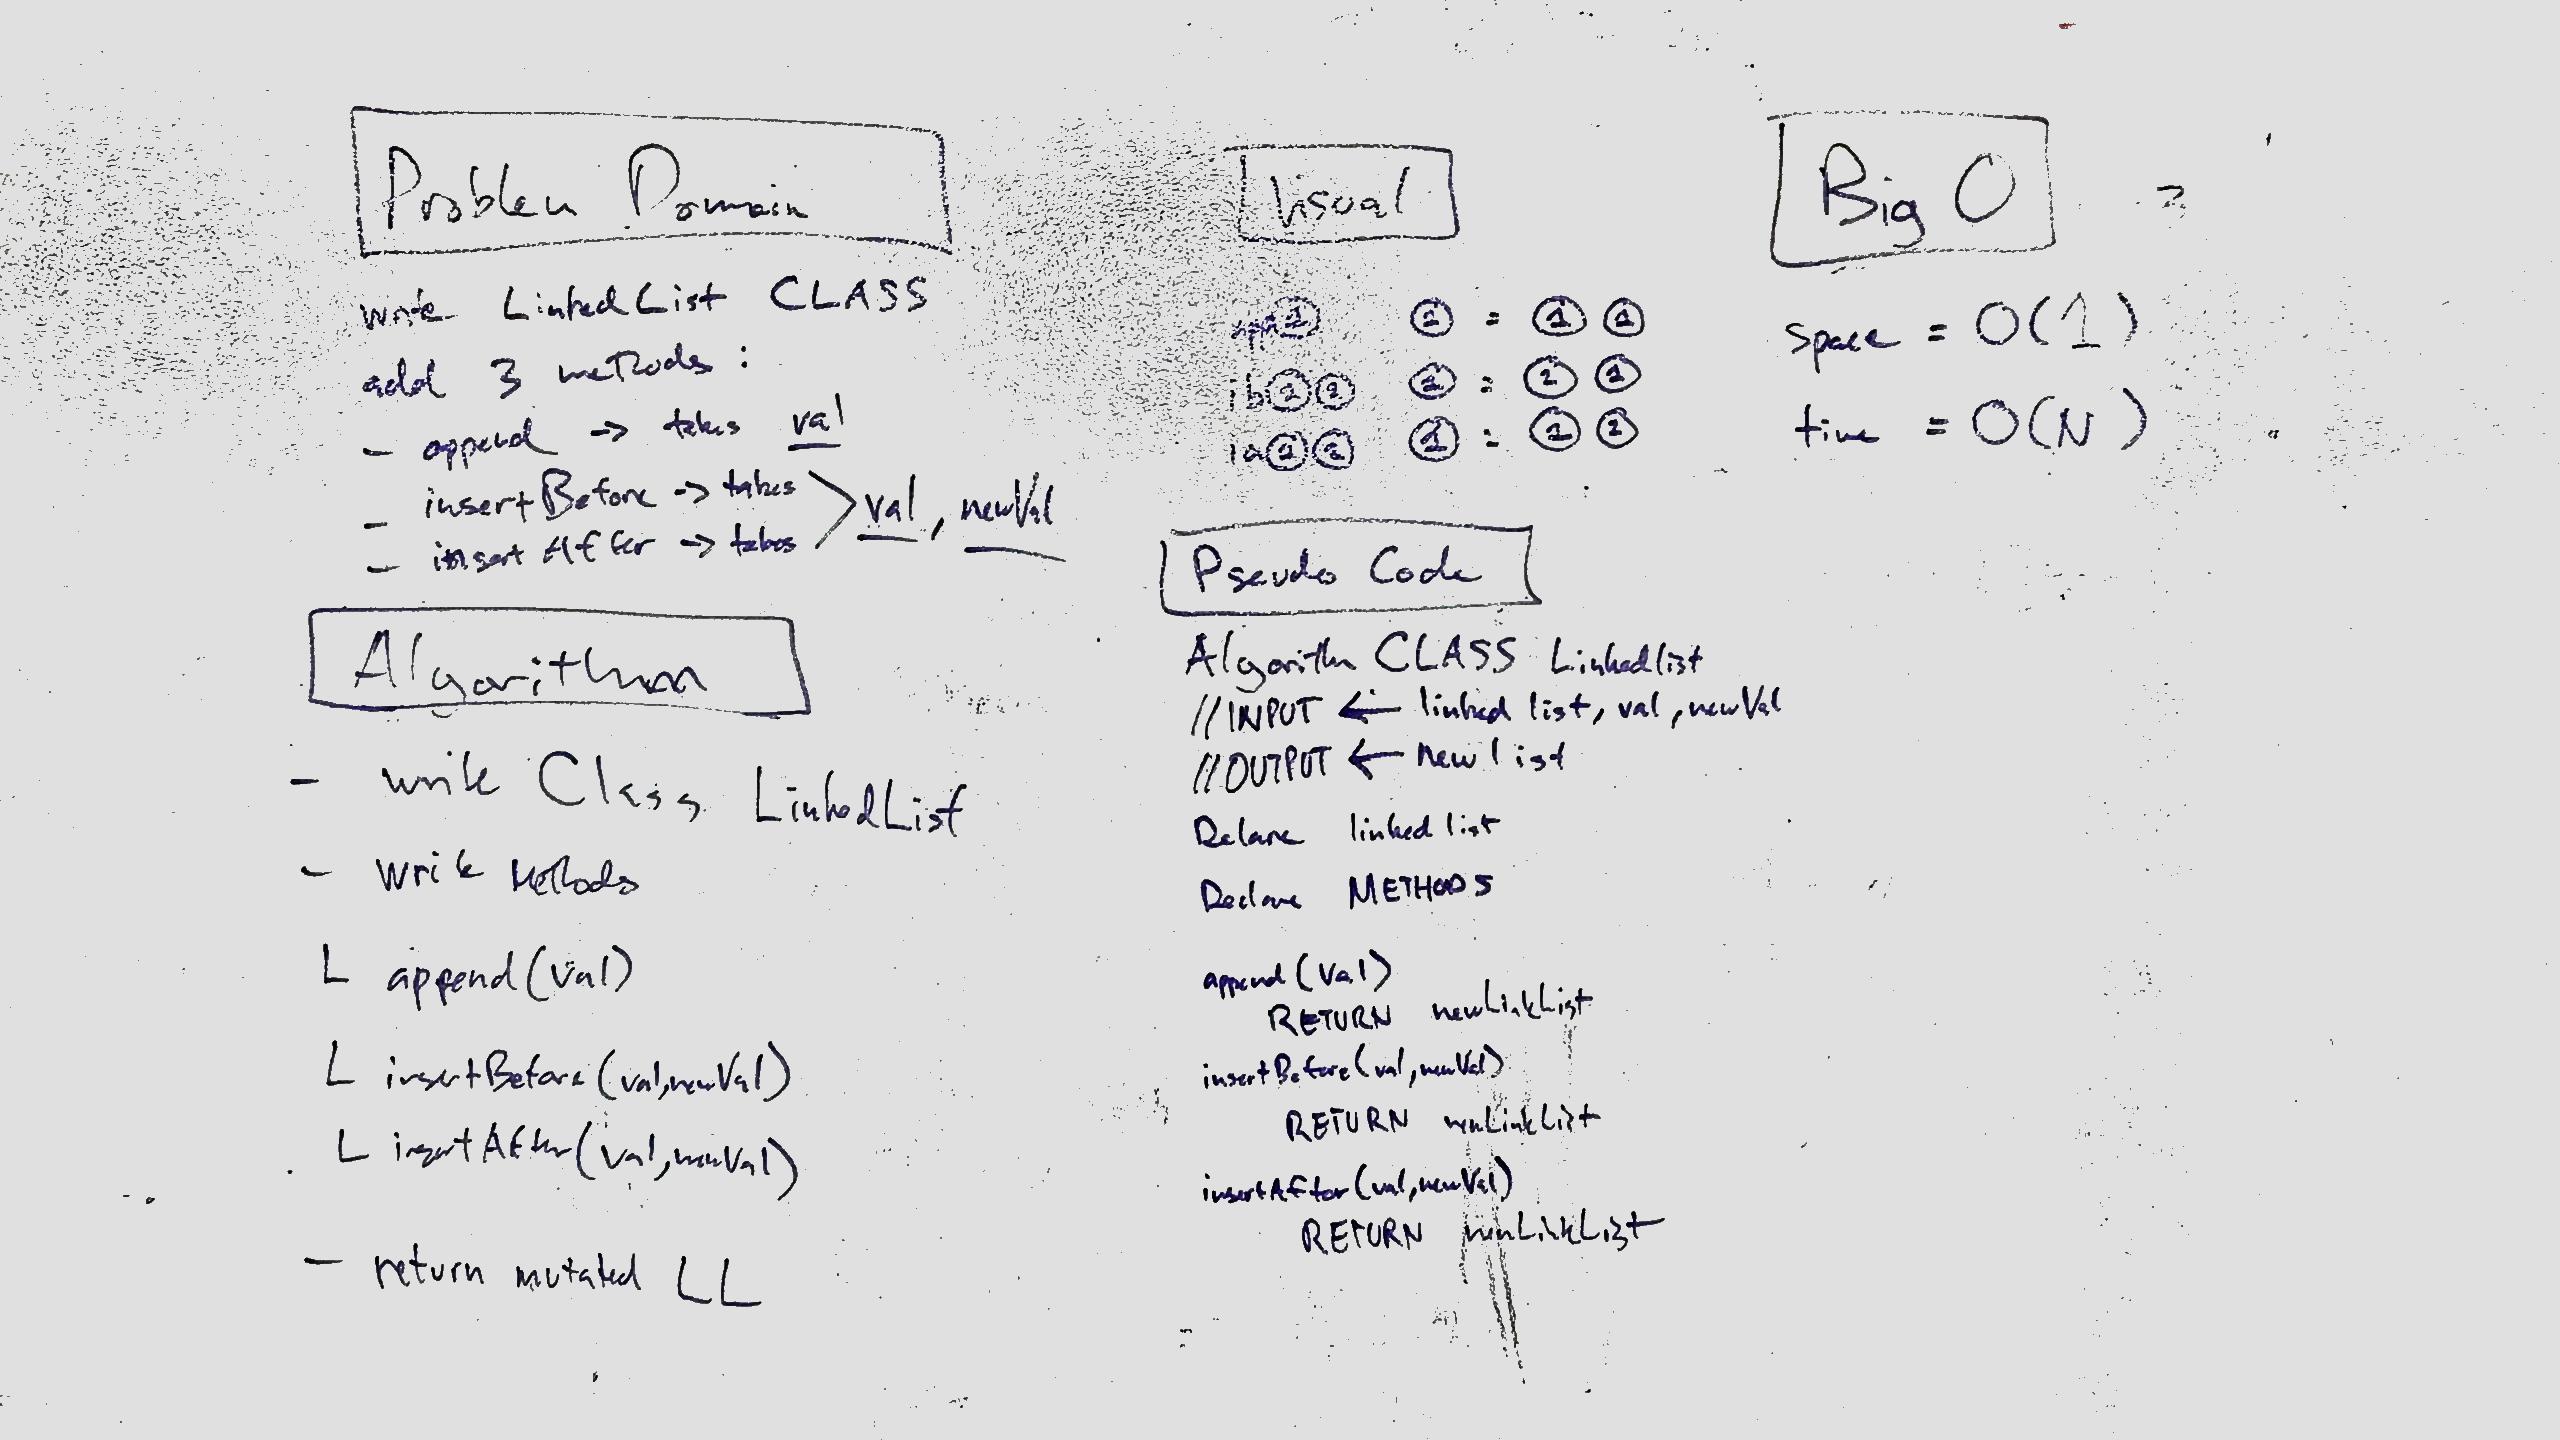 Problem Domain
write LinkedList CLASS
add 3 methods :
- append -> takes val
- insertBefore -> takes > val, newVal
- insertAfter -> takes
Algorithm
- write Class LinkedList
- write Methods
L append(val)
L insertBefore(val,newVal)
L insertAfter(val,newVal)
- return mutated LL
Visual
① = ①
ib = ②
ia = ① ②
Big O
space = O(1)
time = O(N)
Pseudo Code
Algorithm CLASS Linkedlist
//INPUT <- linked list, val, newVal
//OUTPUT <- new list
Declare linked list
Declare METHODS
append(val)
RETURN newLinkList
insertBefore(val,newVal)
RETURN newLinkList
insertAfter(val,newVal)
RETURN newLinkList